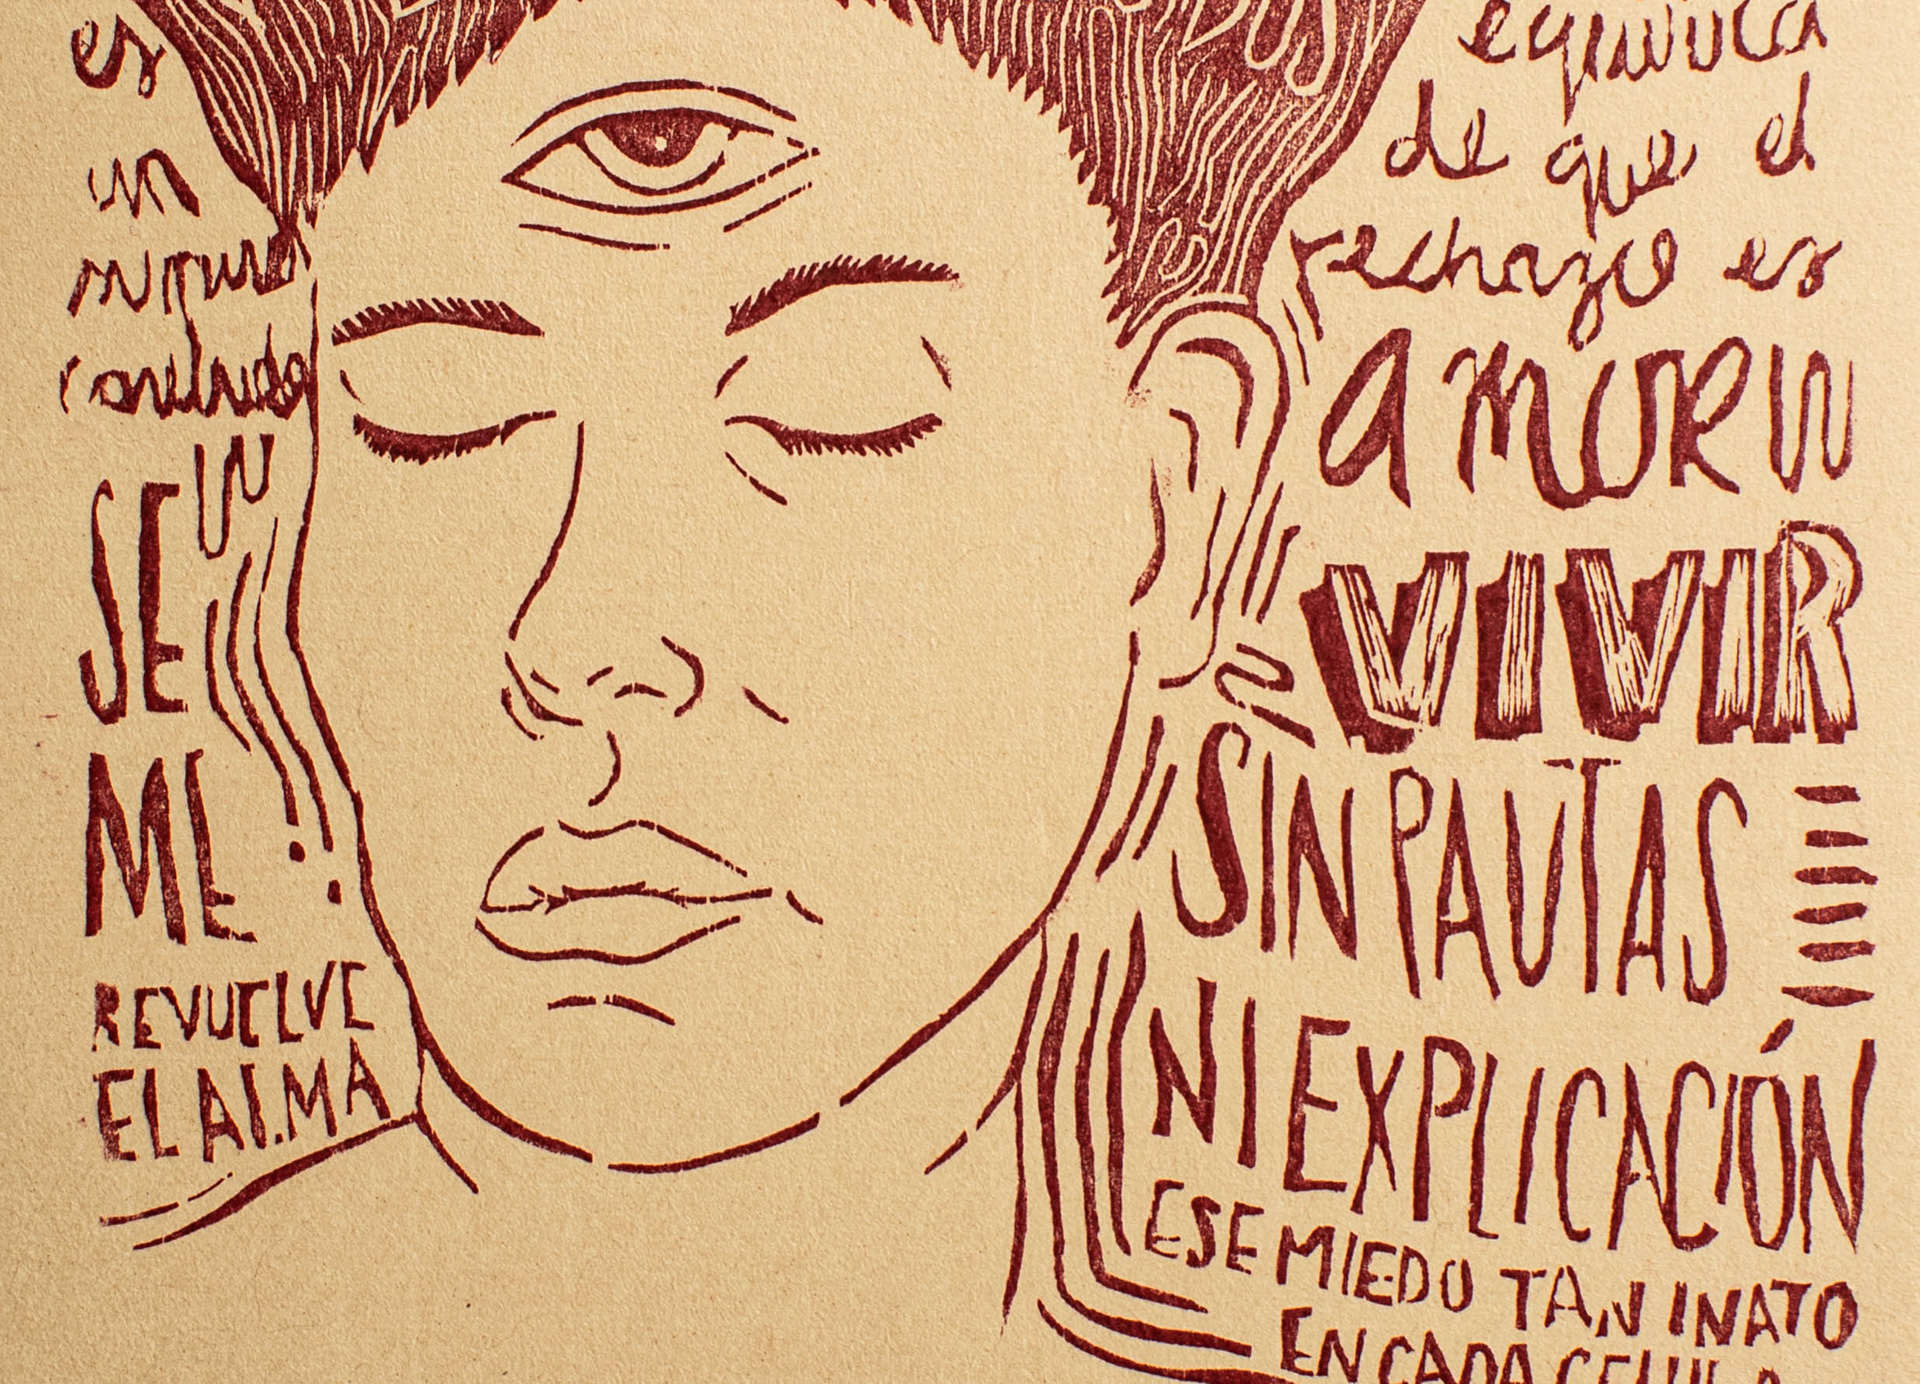 es
un
SE
ME
REVUELVE
EL ALMA
equivoca
de que el
rechazo es
amor
VIVIR
SIN PAUTAS
NI EXPLICACIÓN
ESE MIEDO TAN INATO
EN CADA CELULA